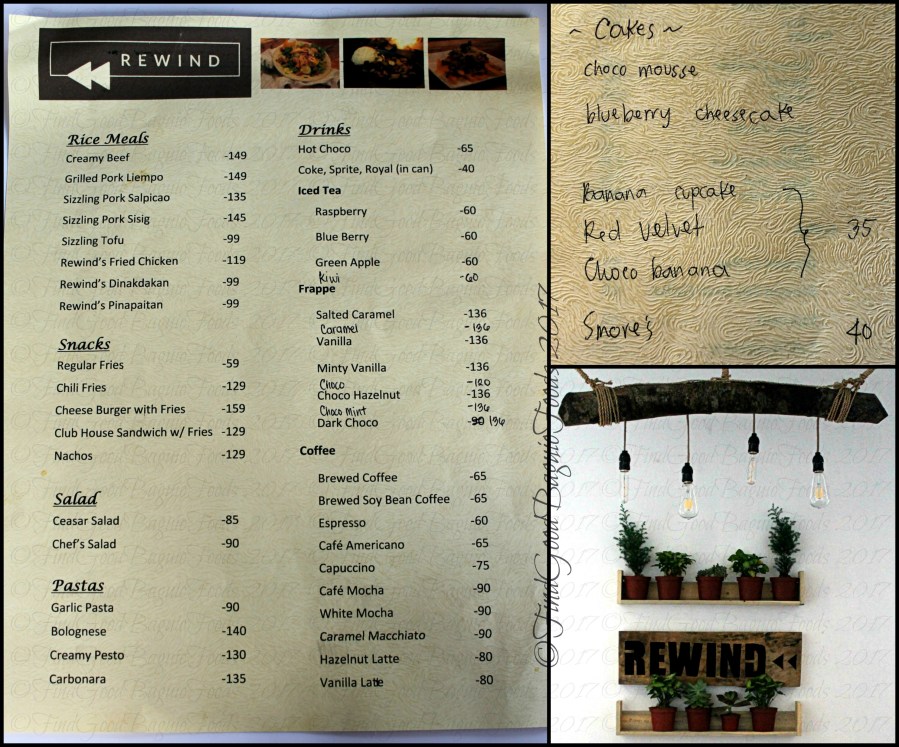 REWIND
Rice Meals
Creamy Beef -149
Grilled Pork Liempo -149
Sizzling Pork Salpicao -135
Sizzling Pork Sisig -145
Sizzling Tofu -99
Rewind's Fried Chicken -119
Rewind's Dinakdakan -99
Rewind's Pinapaitan -99
Snacks
Regular Fries -59
Chili Fries -129
Cheese Burger with Fries -159
Club House Sandwich w/ Fries -129
Nachos -129
Salad
Ceasar Salad -85
Chef's Salad -90
Pastas
Garlic Pasta -90
Bolognese -140
Creamy Pesto -130
Carbonara -135
Drinks
Hot Choco -65
Coke, Sprite, Royal (in can) -40
Iced Tea
Raspberry -60
Blue Berry -60
Green Apple -60
Kiwi -60
Frappe
Salted Caramel -136
Caramel -136
Vanilla -136
Minty Vanilla -136
Choco -120
Choco Hazelnut -136
Choco Mint -136
Dark Choco -90 136
Coffee
Brewed Coffee -65
Brewed Soy Bean Coffee -65
Espresso -60
Café Americano -65
Capuccino -75
Café Mocha -90
White Mocha -90
Caramel Macchiato -90
Hazelnut Latte -80
Vanilla Latte -80
~ Cakes ~
choco mousse
blueberry cheesecake
Banana cupcake
Red Velvet 35
Choco banana
Smore's 40
REWIND
©FindGoodBaguioFoods 2017